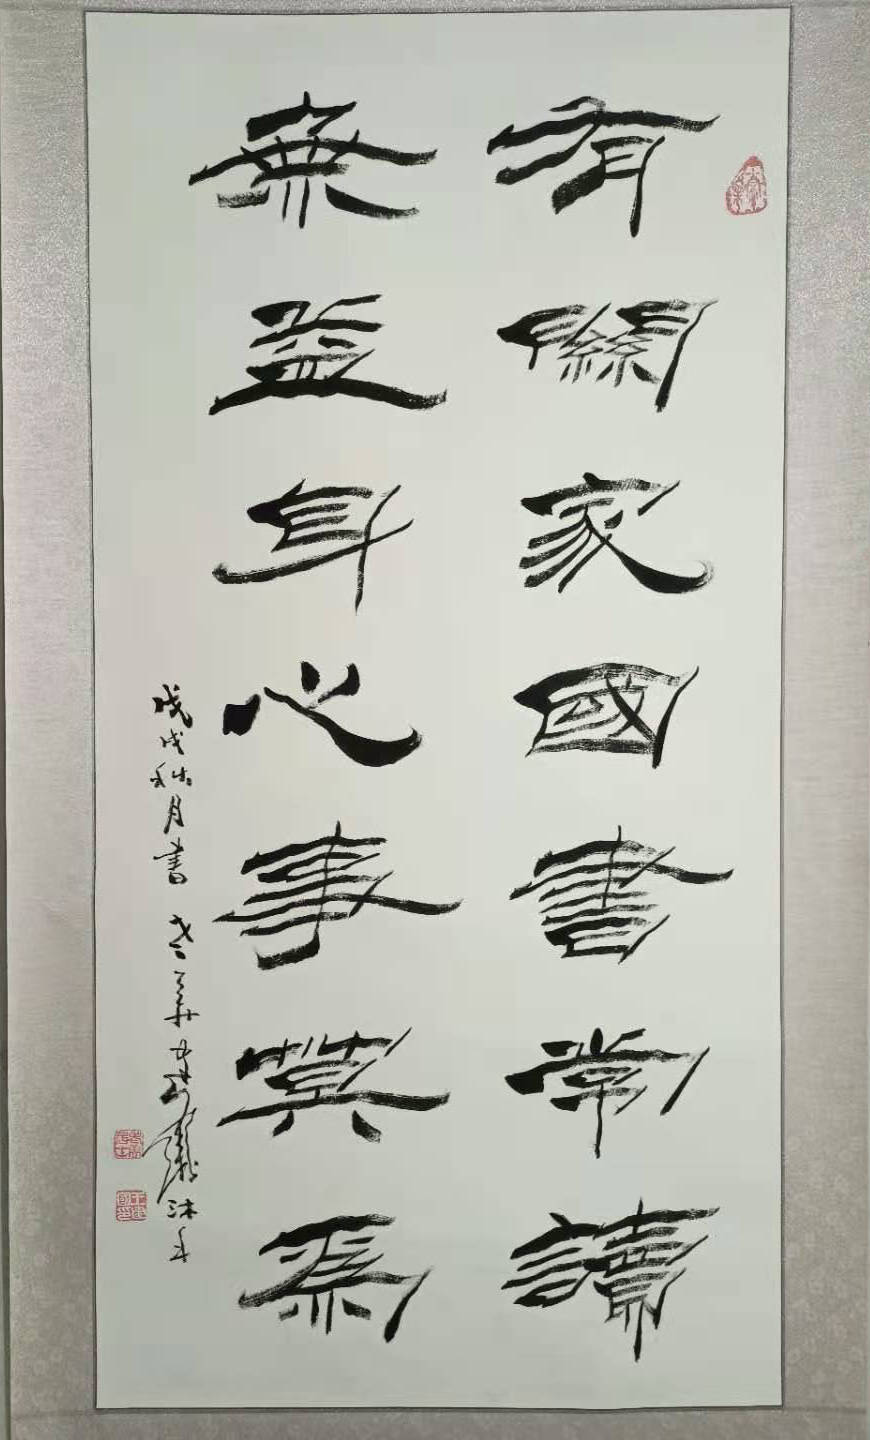 有關家國書常讀
無益身心事莫為
戊戌秋月書
沐手